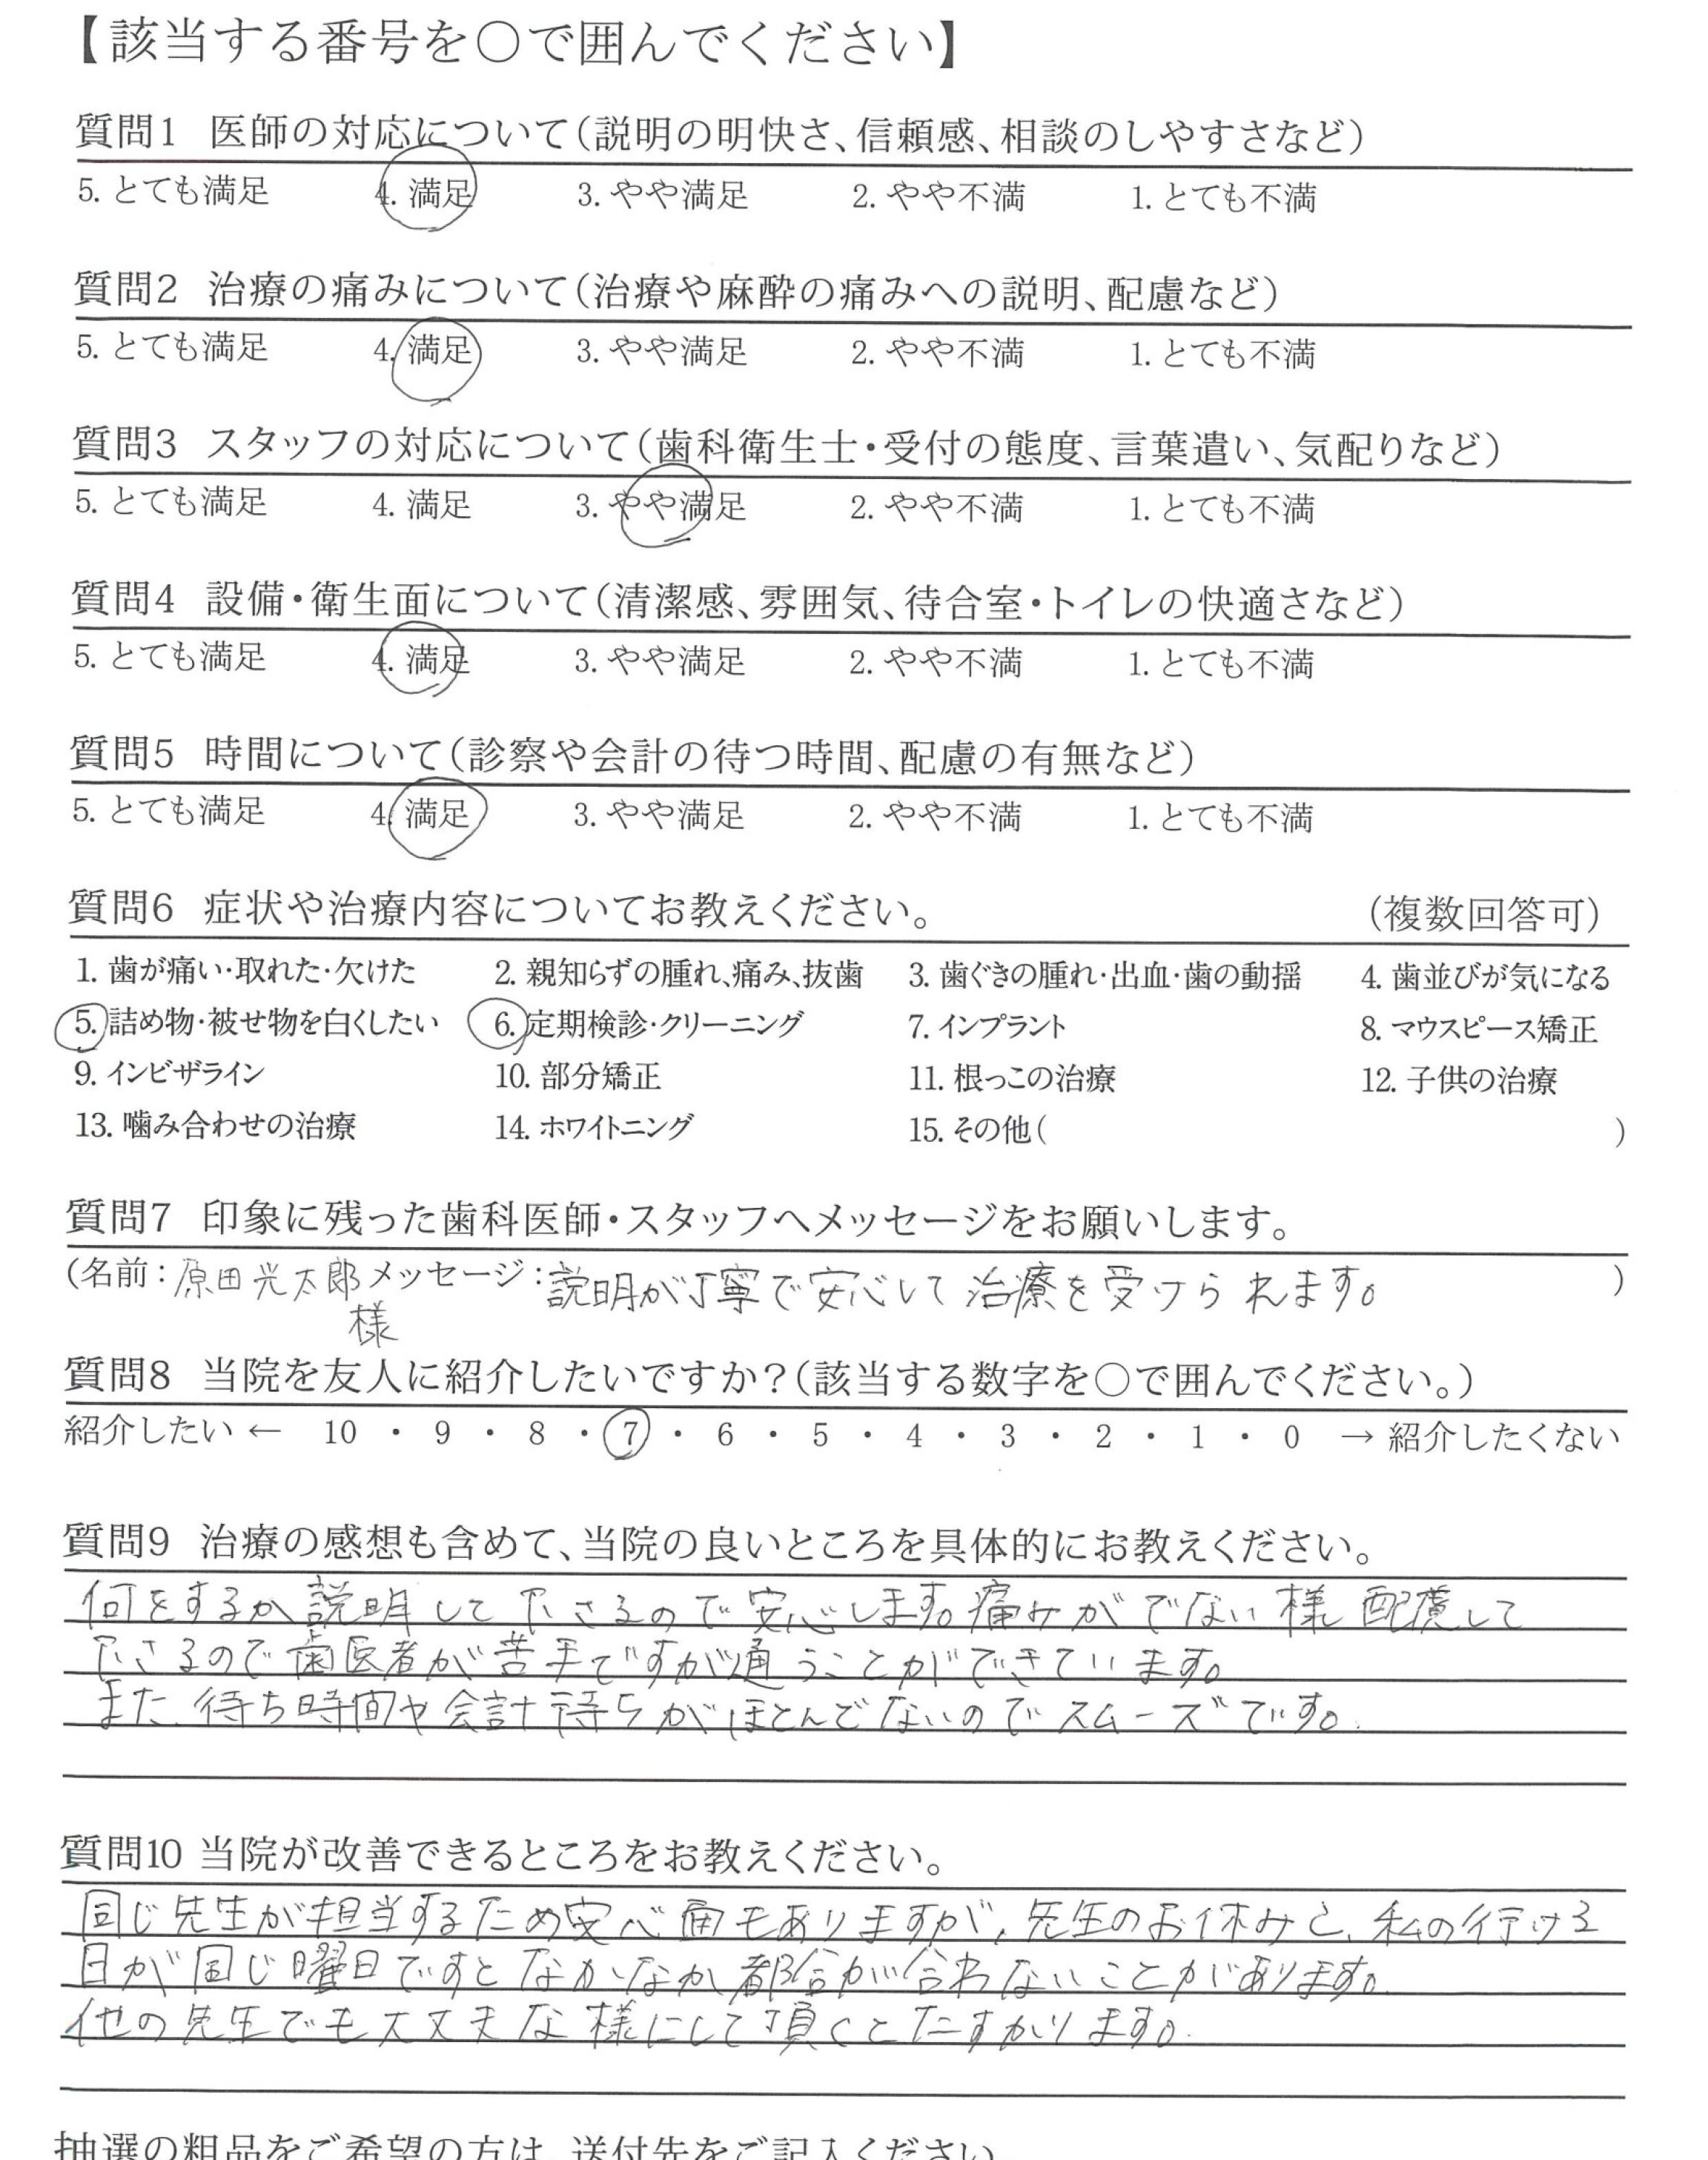 【該当する番号を○で囲んでください】
質問1 医師の対応について(説明の明快さ、信頼感、相談のしやすさなど)
5. とても満足 4. 満足 3. やや満足 2. やや不満 1. とても不満
質問2 治療の痛みについて(治療や麻酔の痛みへの説明、配慮など)
5. とても満足 4. 満足 3. やや満足 2. やや不満 1. とても不満
質問3 スタッフの対応について(歯科衛生士・受付の態度、言葉遣い、気配りなど)
5. とても満足 4. 満足 3. やや満足 2. やや不満 1. とても不満
質問4 設備・衛生面について(清潔感、雰囲気、待合室・トイレの快適さなど)
5. とても満足 4. 満足 3. やや満足 2. やや不満 1. とても不満
質問5 時間について(診察や会計の待つ時間、配慮の有無など)
5. とても満足 4. 満足 3. やや満足 2. やや不満 1. とても不満
質問6 症状や治療内容についてお教えください。 (複数回答可)
1. 歯が痛い・取れた・欠けた 2. 親知らずの腫れ、痛み、抜歯 3. 歯ぐきの腫れ・出血・歯の動揺 4. 歯並びが気になる
5. 詰め物・被せ物を白くしたい 6. 定期検診・クリーニング 7. インプラント 8. マウスピース矯正
9. インビザライン 10. 部分矯正 11. 根っこの治療 12. 子供の治療
13. 噛み合わせの治療 14. ホワイトニング 15. その他( )
質問7 印象に残った歯科医師・スタッフへメッセージをお願いします。
(名前:原田光太郎 メッセージ:説明が丁寧で安心して治療を受けられます。 )
様
質問8 当院を友人に紹介したいですか?(該当する数字を○で囲んでください。)
紹介したい ← 10 ・ 9 ・ 8 ・ 7 ・ 6 ・ 5 ・ 4 ・ 3 ・ 2 ・ 1 ・ 0 → 紹介したくない
質問9 治療の感想も含めて、当院の良いところを具体的にお教えください。
何をするか説明して下さるので安心します。痛みがでない様配慮して
下さるので歯医者が苦手ですが通うことができています。
また、待ち時間や会計待ちがほとんどないのでスムーズです。
質問10 当院が改善できるところをお教えください。
同じ先生が担当するため安心面もありますが、先生のお休みと、私の行ける
日が同じ曜日ですとなかなか都合が合わないことがあります。
他の先生でも大丈夫な様にして頂くとたすかります。
抽選の粗品をご希望の方は、送付先をご記入ください。